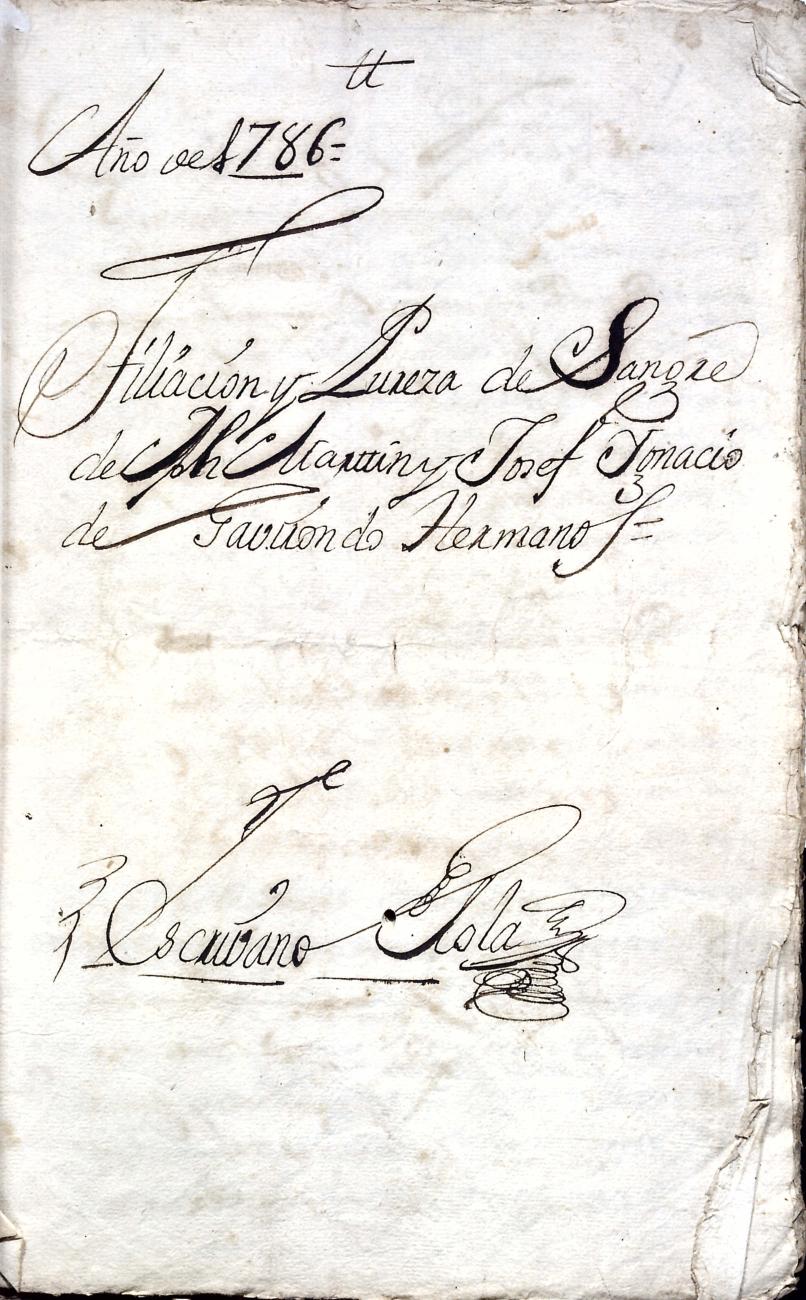 Año de 1786=
Filiación y Pureza de Sangre
de Jph Martin y Josef Ygnacio
de Gaviriondo Hermanos=
Escrivano Elola